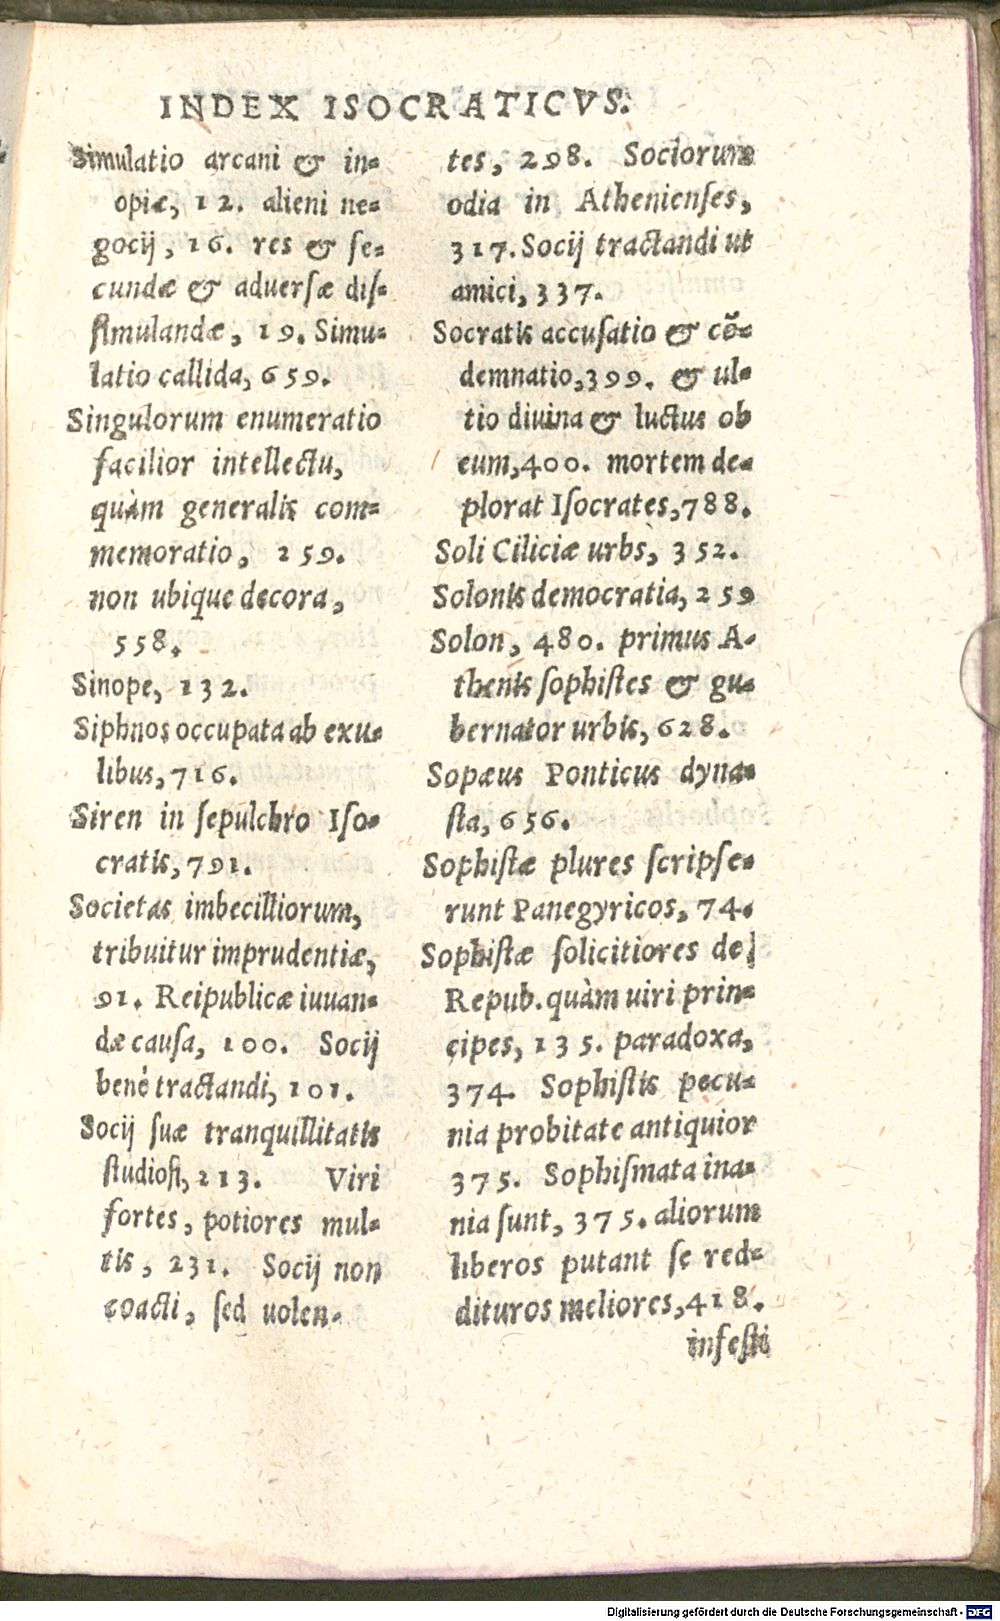 INDEX ISOCRATICVS.
Simulatio arcani & in-
opiæ, 12. alieni ne-
gocij, 16. res & se-
cundæ & aduersæ dis-
simulandæ, 19. Simu-
latio callida, 659.
Singulorum enumeratio
facilior intellectu,
quàm generalis com-
memoratio, 259.
non ubique decora,
558.
Sinope, 132.
Siphnos occupata ab exu-
libus, 716.
Siren in sepulchro Iso-
cratis, 791.
Societas imbecilliorum,
tribuitur imprudentiæ,
91. Reipublicæ iuuan-
dæ causa, 100. Socij
benè tractandi, 101.
Socij suæ tranquillitatis
studiosi, 213. Viri
fortes, potiores mul-
tis, 231. Socij non
coacti, sed uolen-
tes, 298. Sociorum
odia in Athenienses,
317. Socij tractandi ut
amici, 337.
Socratis accusatio & cõ-
demnatio, 399. & ul-
tio diuina & luctus ob
eum, 400. mortem de-
plorat Isocrates, 788.
Soli Ciliciæ urbs, 352.
Solonis democratia, 259
Solon, 480. primus A-
thenis sophistes & gu-
bernator urbis, 628.
Sopæus Ponticus dyna-
sta, 656.
Sophistæ plures scripse-
runt Panegyricos, 74.
Sophistæ solicitiores de
Repub. quàm uiri prin-
cipes, 135. paradoxa,
374. Sophistis pecu-
nia probitate antiquior
375. Sophismata ina-
nia sunt, 375. aliorum
liberos putant se red-
dituros meliores, 418.
infesti
Digitalisierung gefördert durch die Deutsche Forschungsgemeinschaft - DFG